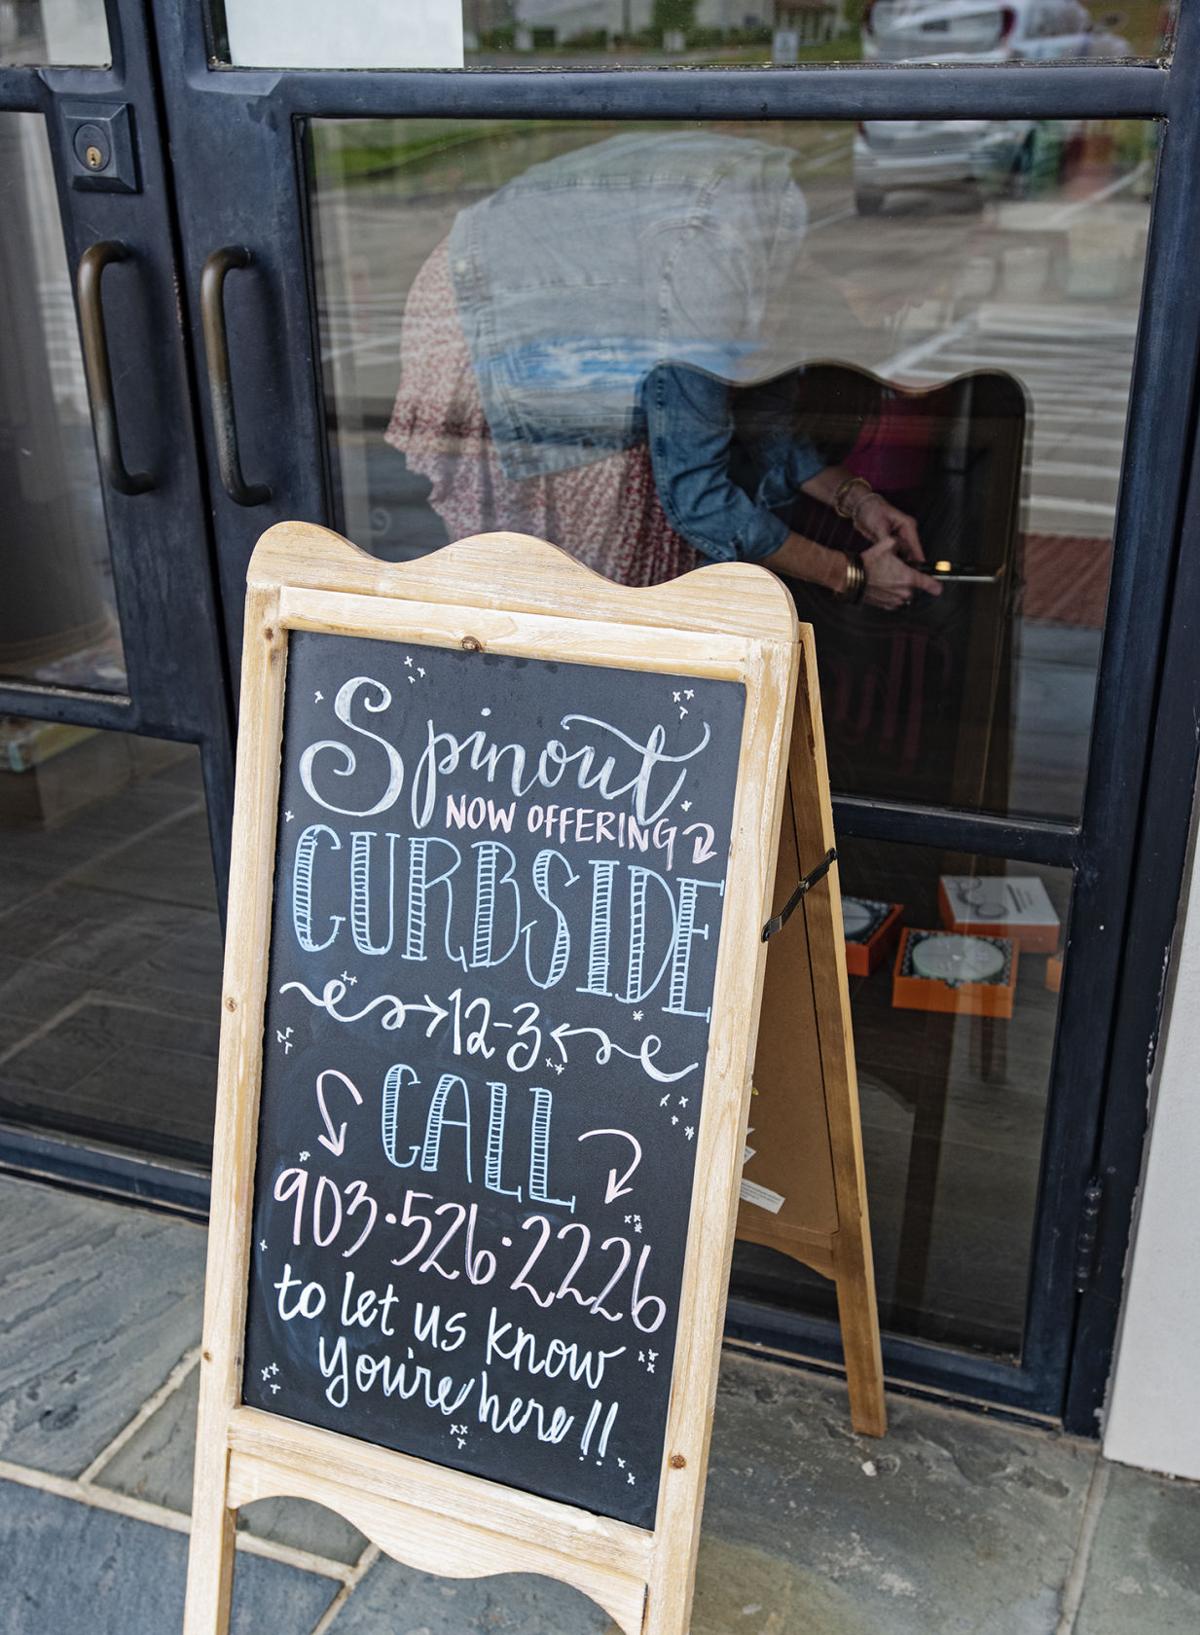 Spinout
NOW OFFERING
CURBSIDE
12-3
CALL
903·526·2226
to let us know
you're here!!